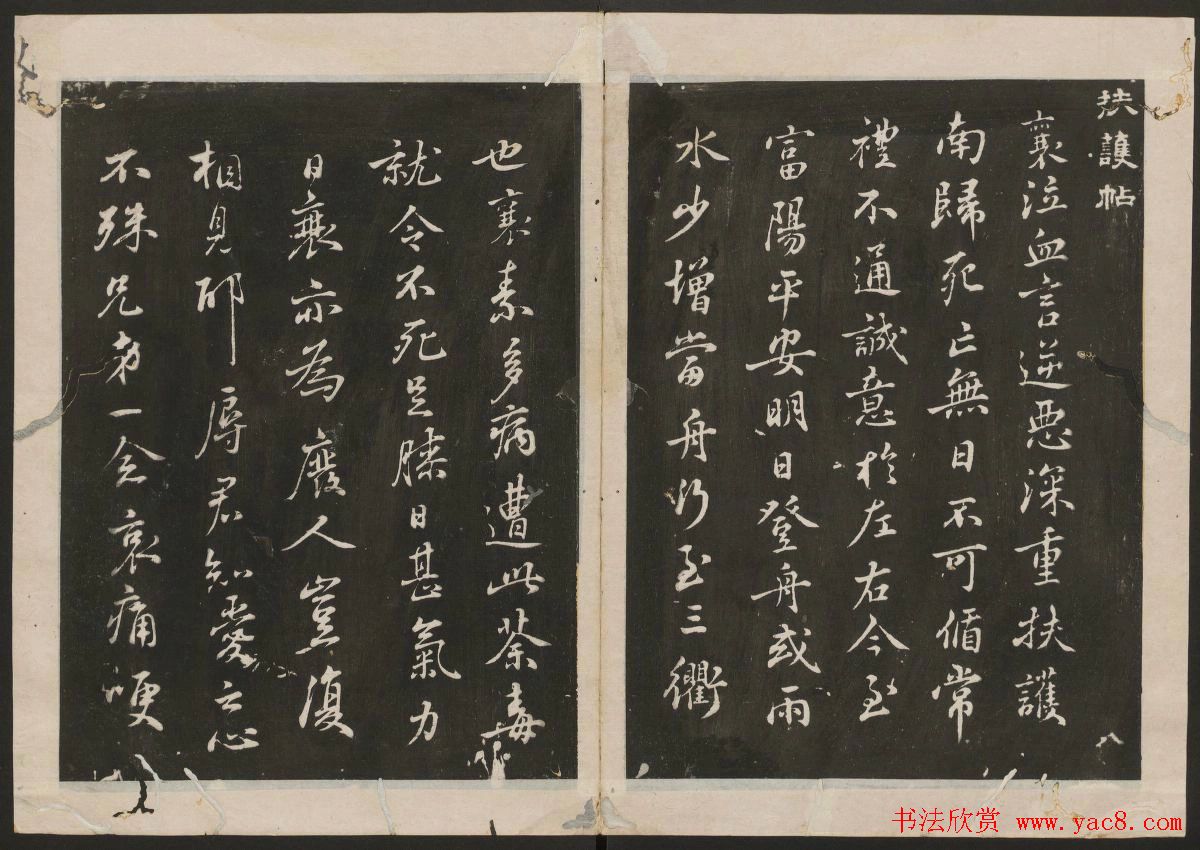 扶護帖
襄泣血言逆惡深重扶護
南歸死亡無日不可循常
禮不通誠意於左右今至
富陽平安明日登舟或雨
水少增當舟行至三衢
也襄素多病遭此荼毒
就令不死足膝日甚氣力
日衰亦為廢人豈復
相見邪辱君知愛之心
不殊兄弟一念哀痛哽
书法欣赏 www.yac8.com